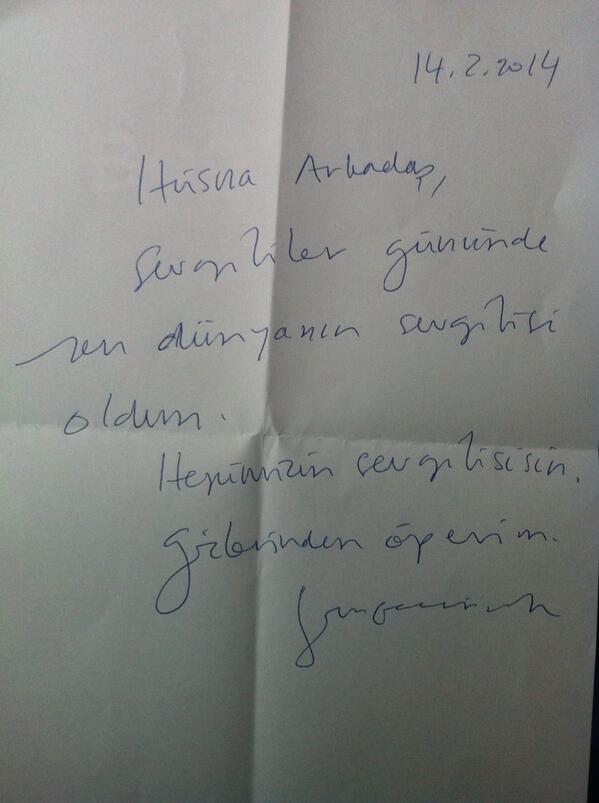 14.2.2014
Hüsna Arkadaş,
Sevgililer gününde
sen dünyanın sevgilisi
oldun.
Hepimizin sevgilisisin.
Gözlerinden öperim.